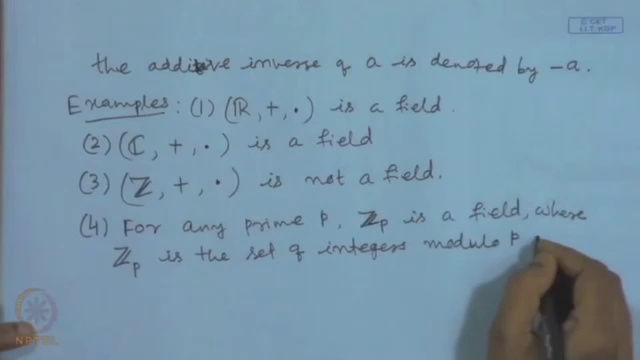 © CET
I.I.T. KGP
the additive inverse of a is denoted by -a.
Examples: (1) (ℝ, +, •) is a field.
(2) (ℂ, +, •) is a field
(3) (ℤ, +, •) is not a field.
(4) For any prime p, ℤp is a field, where
ℤp is the set of integers modulo p
NPTEL